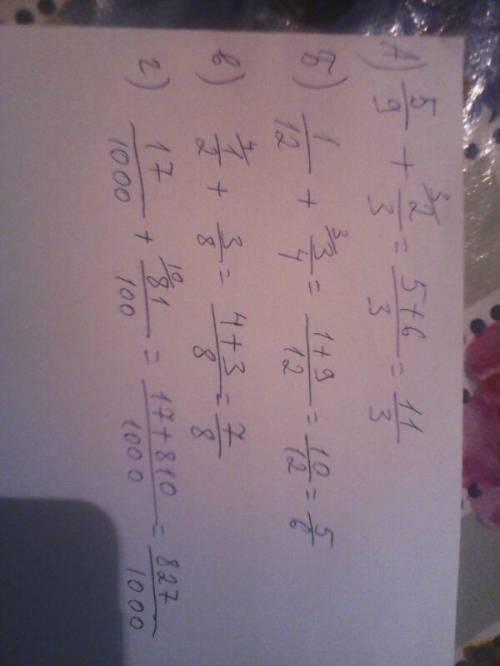 А) 5/9 + ³2/3 = 5+6/3 = 11/3
б) 1/12 + ³3/4 = 1+9/12 = 10/12 = 5/6
в) ⁴1/2 + 3/8 = 4+3/8 = 7/8
г) 17/1000 + ¹⁰81/100 = 17+810/1000 = 827/1000